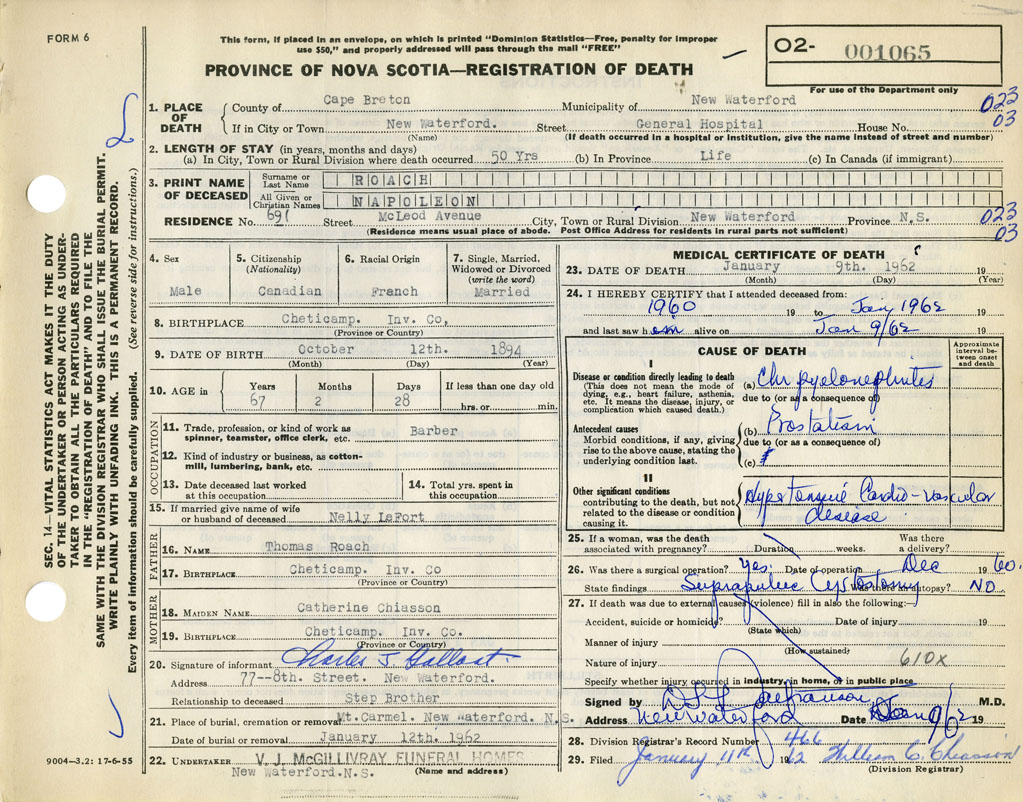 FORM 6
This form, if placed in an envelope, on which is printed "Dominion Statistics—Free, penalty for improper
use $50," and properly addressed will pass through the mail "FREE"
PROVINCE OF NOVA SCOTIA—REGISTRATION OF DEATH
O2- 001065
For use of the Department only
SEC. 14—VITAL STATISTICS ACT MAKES IT THE DUTY
OF THE UNDERTAKER OR PERSON ACTING AS UNDER-
TAKER TO OBTAIN ALL THE PARTICULARS REQUIRED
IN THE "REGISTRATION OF DEATH" AND TO FILE THE
SAME WITH THE DIVISION REGISTRAR WHO SHALL ISSUE THE BURIAL PERMIT.
WRITE PLAINLY WITH UNFADING INK. THIS IS A PERMANENT RECORD.
Every item of information should be carefully supplied. (See reverse side for instructions.)
1. PLACE OF DEATH
County of Cape Breton Municipality of New Waterford 023
If in City or Town New Waterford. Street General Hospital House No. 03
(Name) (If death occurred in a hospital or institution, give the name instead of street and number)
2. LENGTH OF STAY (in years, months and days)
(a) In City, Town or Rural Division where death occurred 50 Yrs (b) In Province Life (c) In Canada (if immigrant)
3. PRINT NAME OF DECEASED
Surname or Last Name ROACH
All Given or Christian Names NAPOLEON
RESIDENCE No. 691 Street McLeod Avenue City, Town or Rural Division New Waterford Province N.S. 023
(Residence means usual place of abode. Post Office Address for residents in rural parts not sufficient) 03
4. Sex Male
5. Citizenship (Nationality) Canadian
6. Racial Origin French
7. Single, Married, Widowed or Divorced (write the word) Married
8. BIRTHPLACE Cheticamp. Inv. Co,
(Province or Country)
9. DATE OF BIRTH October 12th. 1894
(Month) (Day) (Year)
10. AGE in Years 67 Months 2 Days 28 If less than one day old hrs. or min.
OCCUPATION
11. Trade, profession, or kind of work as
spinner, teamster, office clerk, etc. Barber
12. Kind of industry or business, as cotton-
mill, lumbering, bank, etc.
13. Date deceased last worked
at this occupation
14. Total yrs. spent in
this occupation
15. If married give name of wife
or husband of deceased Nelly LeFort
FATHER
16. NAME Thomas Roach
17. BIRTHPLACE Cheticamp. Inv. Co
(Province or Country)
MOTHER
18. MAIDEN NAME Catherine Chiasson
19. BIRTHPLACE Cheticamp. Inv. Co.
(Province or Country)
20. Signature of informant Charles J
Address 77--8th. Street. New Waterford.
Relationship to deceased Step Brother
21. Place of burial, cremation or removal Mt.Carmel. New Waterford. N.S.
Date of burial or removal January 12th. 1962
22. UNDERTAKER V. J. McGILLIVRAY FUNERAL HOMES
New Waterford.N.S. (Name and address)
9004—3.2: 17-6-55
MEDICAL CERTIFICATE OF DEATH
23. DATE OF DEATH January 9th. 1962 19
(Month) (Day) (Year)
24. I HEREBY CERTIFY that I attended deceased from:
1960 19 to Jan 1962 19
and last saw h em alive on Jan 9/62 19
CAUSE OF DEATH
Approximate interval between onset and death
I
Disease or condition directly leading to death
(This does not mean the mode of
dying, e.g., heart failure, asthenia,
etc. It means the disease, injury, or
complication which caused death.)
(a) Chr pyelonephritis
due to (or as a consequence of)
Antecedent causes
Morbid conditions, if any, giving
rise to the above cause, stating the
underlying condition last.
(b) Prostatism
due to (or as a consequence of)
(c)
II
Other significant conditions
contributing to the death, but not
related to the disease or condition
causing it.
Hypertensive Cardio-vascular
disease
25. If a woman, was the death
associated with pregnancy? Duration weeks. Was there
a delivery?
26. Was there a surgical operation? yes. Date of operation Dec 19 60.
State findings Suprapubic Cystostomy Was there an autopsy? NO
27. If death was due to external causes (violence) fill in also the following:—
Accident, suicide or homicide? Date of injury 19
(State which)
Manner of injury
(How sustained)
Nature of injury 610X
Specify whether injury occurred in industry, in home, or in public place
Signed by M.D.
Address New Waterford Date Jan 9/62 19
28. Division Registrar's Record Number 466
29. Filed January 11th 1962 William C. Chiasson
(Division Registrar)